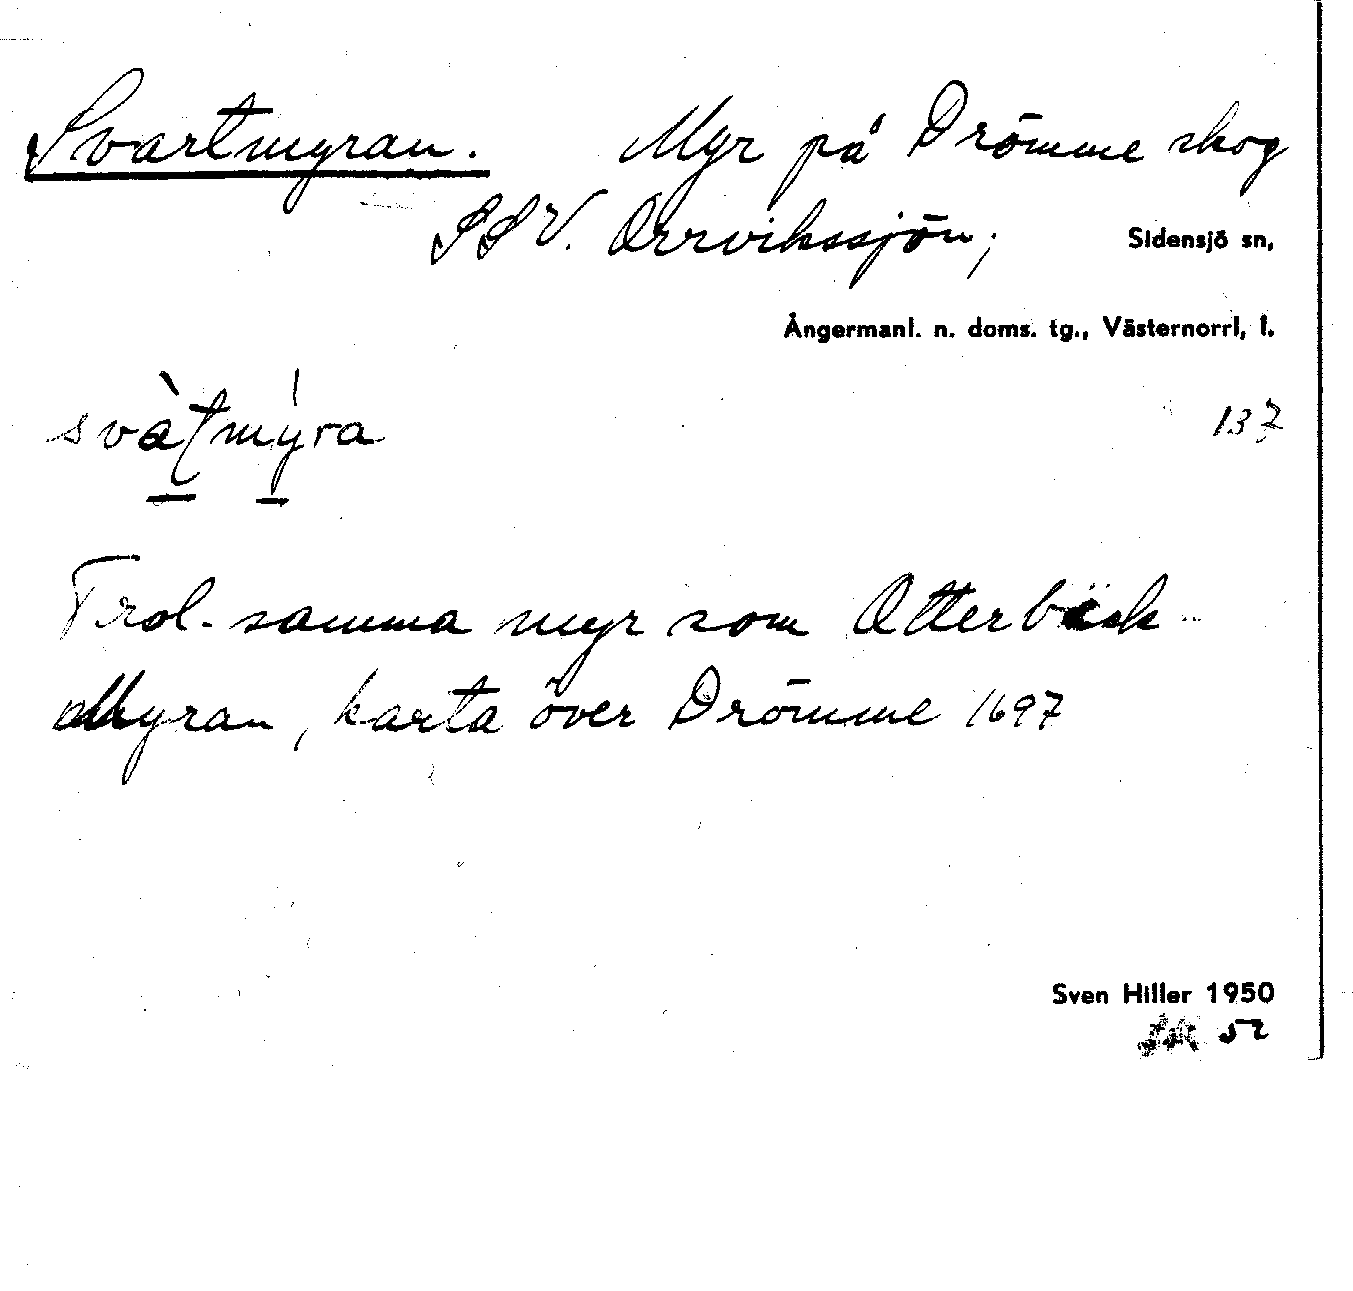 Svartmyran. Myr på Drömme skog
SSV. Orrvikssjön;
Sidensjö sn,
Ångermanl. n. doms. tg., Västernorrl, l.
137
svàʈmy̍ra
Trol. samma myr som Otterbäck-
Myran, karta över Drömme 1697
Sven Hiller 1950
52